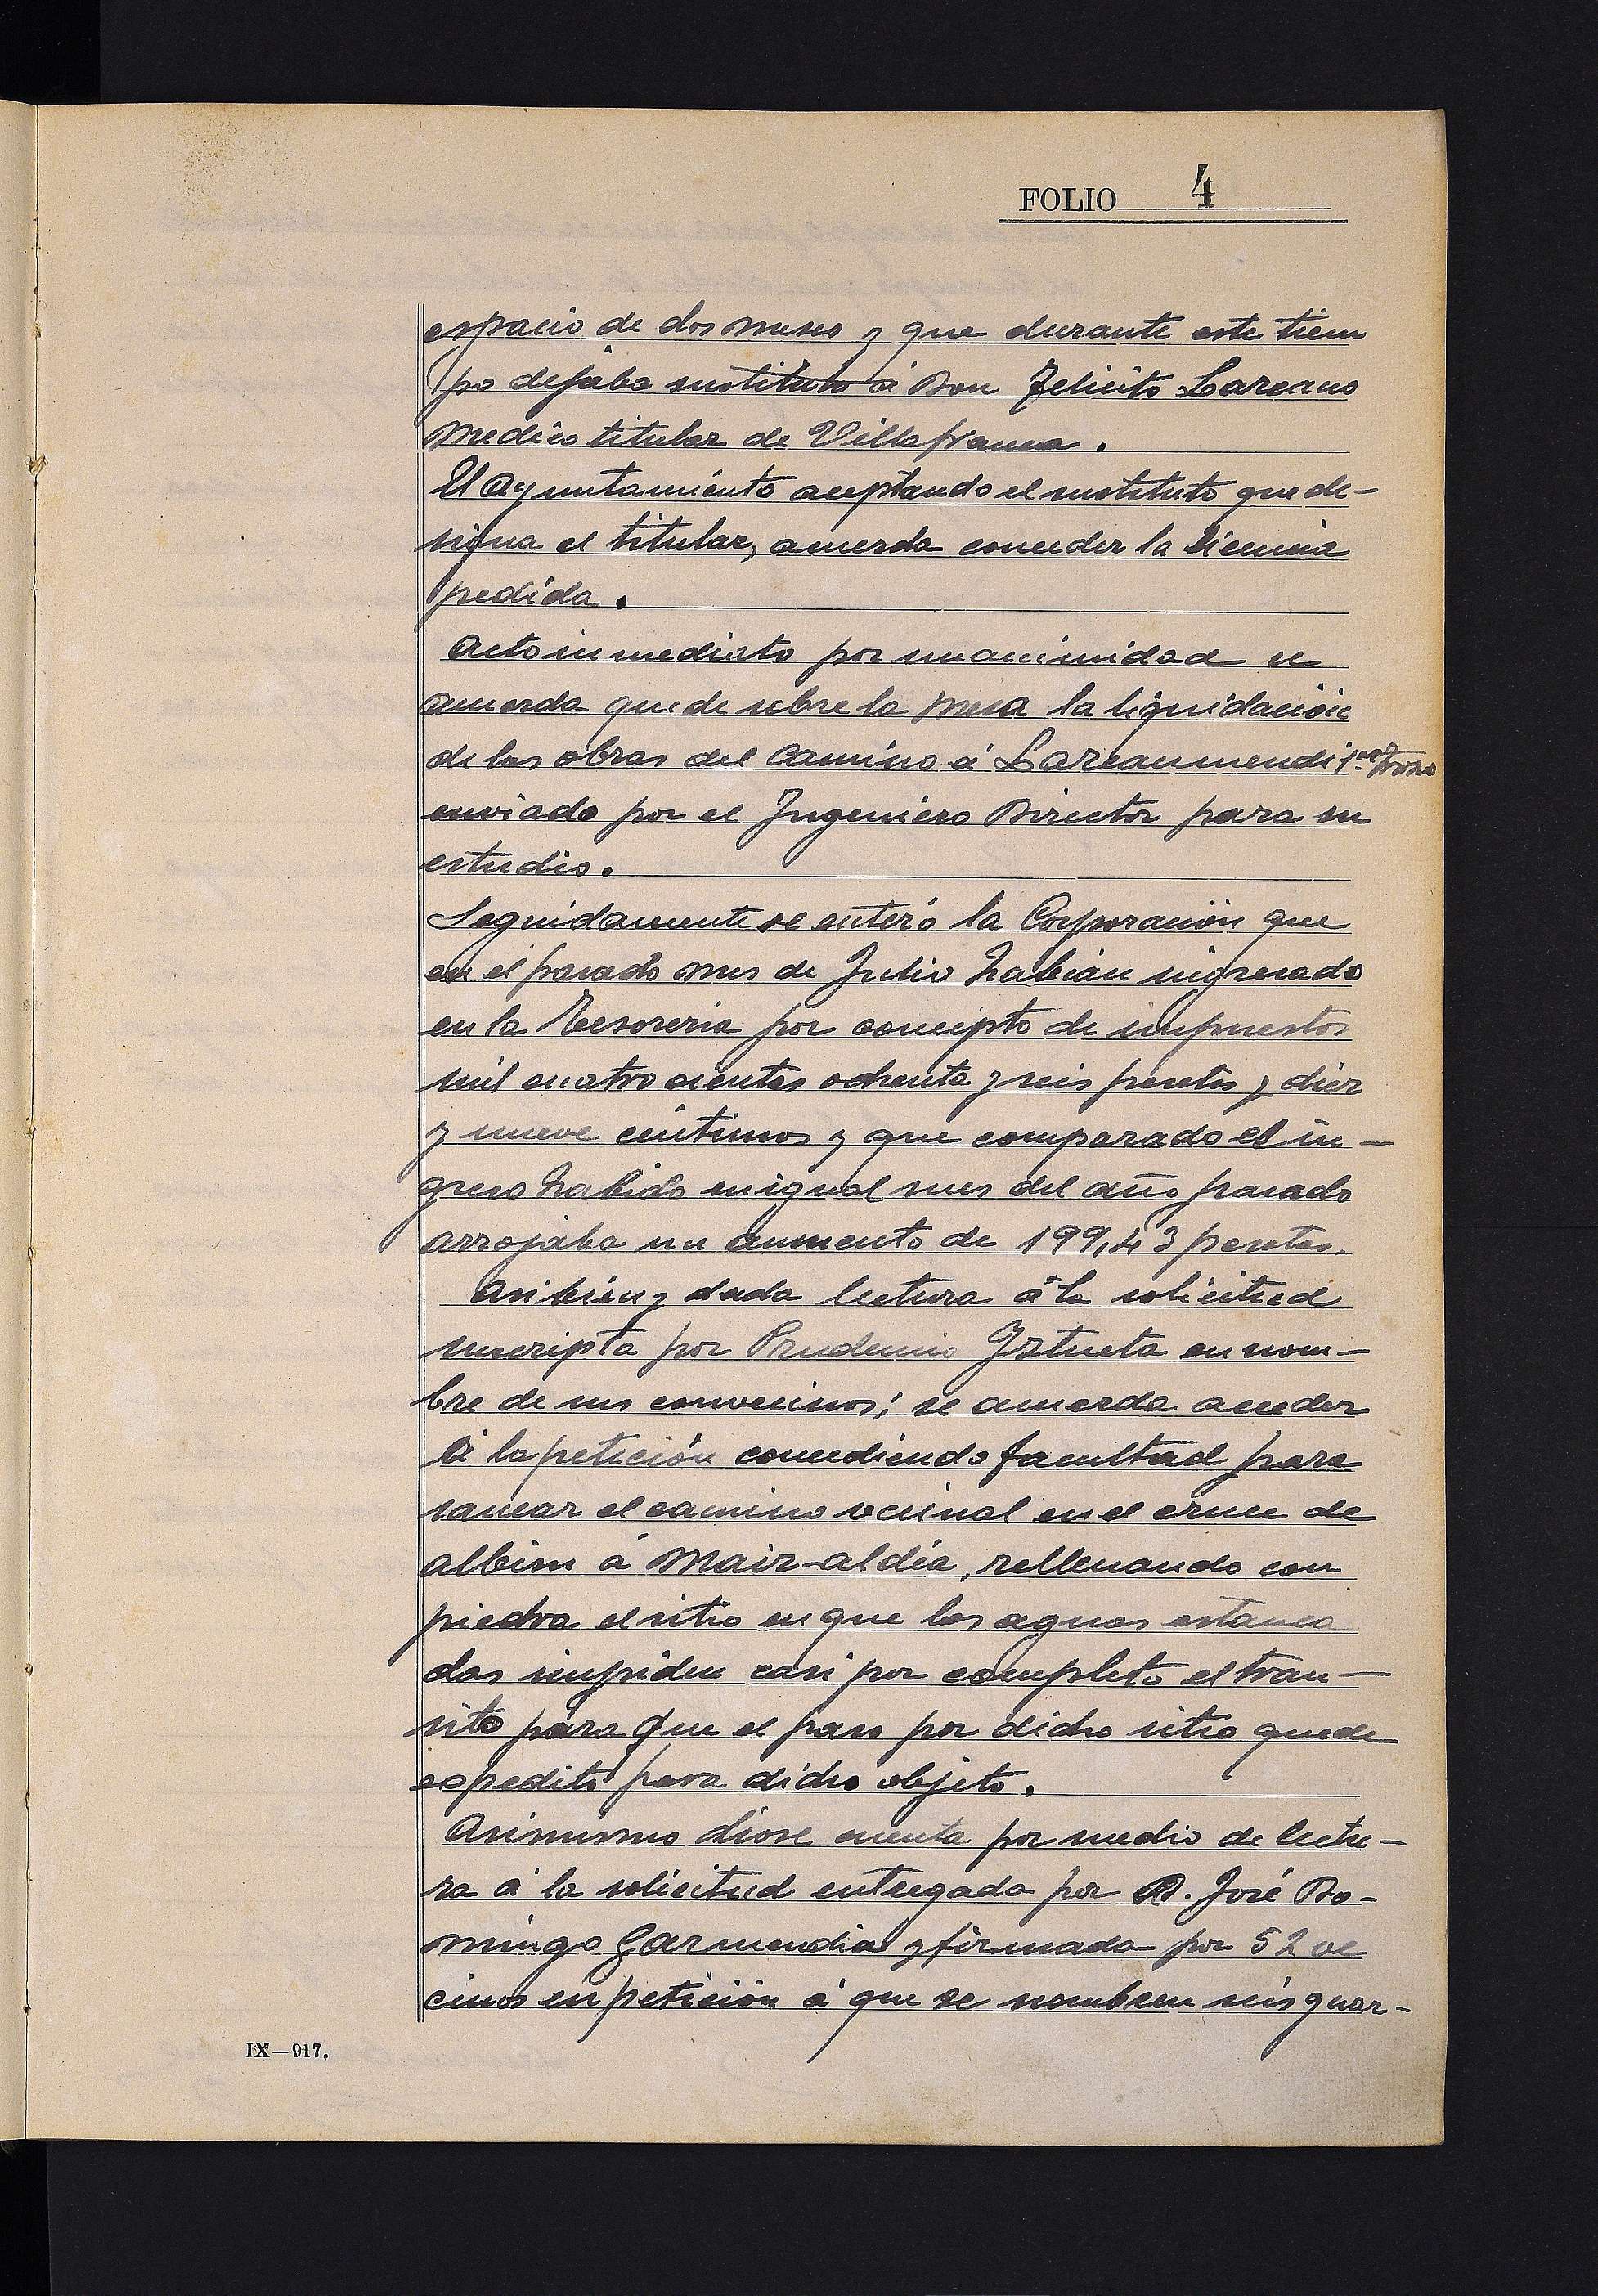 FOLIO 4
espacio de dos meses y que durante este tiem
po dejaba sustituto á Don Felicito Lazcano
medico titular de Villafranca.
El Ayuntamiento aceptando el sustituto que de-
signa el titular, acuerda conceder la licencia
pedida.
Acto inmediato por unanimidad se
acuerda quede sobre la mesa la liquidación
de las obras del camino á Lazcaumendi 1er Trozo
enviado por el Ingeniero Director para su
estudio.
Seguidamente se enteró la Corporación que
en el pasado mes de Julio habian ingresado
en la Tesoreria por concepto de impuestos
mil cuatrocientas ochenta y seis pesetas y diez
y nueve céntimos y que comparado el in-
greso habido en igual mes del año pasado
arrojaba un aumento de 199,43 pesetas.
Asi bien y dada lectura á la solicitud
suscripta por Prudencio Iztueta en nom-
bre de sus convecinos; se acuerda acceder
á la petición concediendo facultad para
sanear el camino vecinal en el cruce de
albisu á Maiz-aldea, rellenando con
piedra el sitio en que las aguas estanca
das impiden casi por completo el tran-
sito para que el paso por dicho sitio quede
espedito para dicho objeto.
Asimismo diose cuenta por medio de lectu-
ra á la solicitud entregada por D. José Do-
mingo Garmendia y firmada por 52 ve
cinos en petición á que se nombren seis guar-
IX—917.